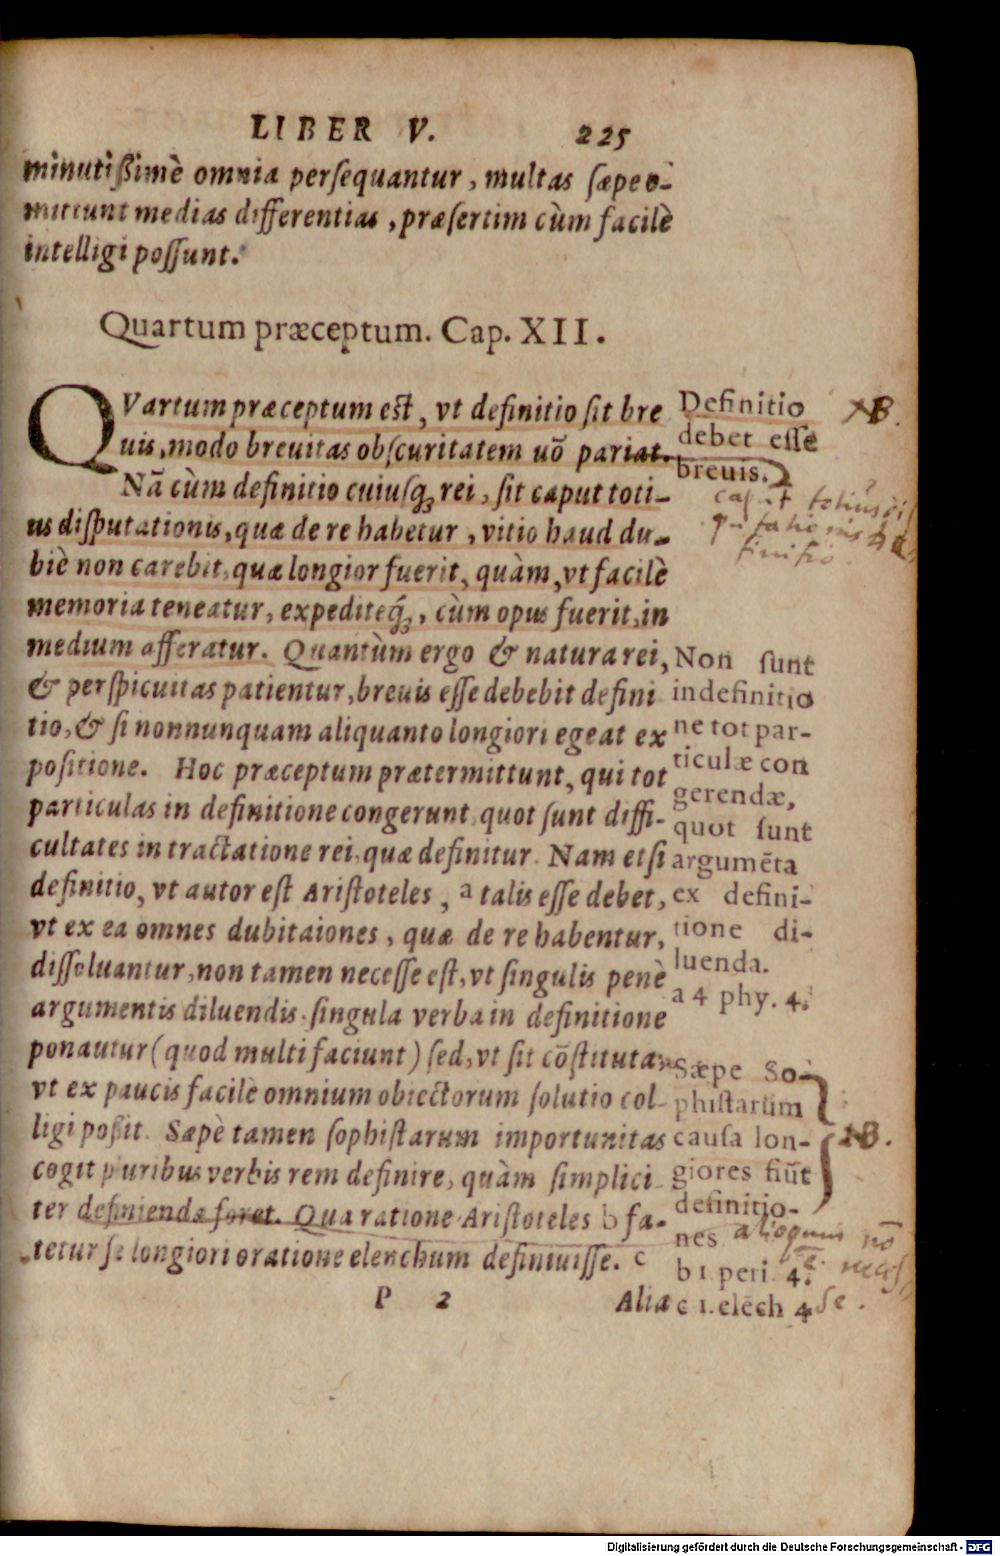 LIBER V. 225
minutißimè omnia perſequantur, multas ſæpe o-
mittunt medias differentias, præſertim cùm facilè
intelligi poſſunt.
Quartum præceptum. Cap. XII.
QVartum præceptum eſt, vt definitio ſit bre
uis, modo breuitas obſcuritatem nō pariat.
Nā cùm definitio cuiuſq́; rei, ſit caput toti-
us diſputationis, quæ de re habetur, vitio haud du-
biè non carebit, quæ longior fuerit, quàm, vt facilè
memoria teneatur, expediteq́;, cùm opus fuerit, in
medium afferatur. Quantùm ergo & natura rei,
& perſpicuitas patientur, breuis eſſe debebit defini
tio, & ſi nonnunquam aliquanto longiori egeat ex
poſitione. Hoc præceptum prætermittunt, qui tot
particulas in definitione congerunt quot ſunt diffi-
cultates in tractatione rei, quæ definitur. Nam etſi
definitio, vt autor eſt Ariſtoteles, a talis eſſe debet,
vt ex ea omnes dubitaiones, quæ de re habentur,
diſſoluantur, non tamen neceſſe eſt, vt ſingulis penè
argumentis diluendis, ſingula verba in definitione
ponautur (quod multi faciunt) ſed, vt ſit cōſtituta,
vt ex paucis facilè omnium obiectorum ſolutio col-
ligi poſſit. Sæpè tamen ſophiſtarum importunitas
cogit puribus verbis rem definire, quàm ſimplici-
ter definienda foret. Qua ratione Ariſtoteles b fa-
tetur ſe longiori oratione elenchum definiuiſſe. c
P 2 Aliæ
Definitio
debet eſſe
breuis.
NB.
caput totius diſ
putationis
finitio.
Non ſunt
in definitio
ne tot par-
ticulæ con
gerendæ,
quot ſunt
argumēta
ex defini-
tione di-
luenda.
a 4 phy. 4.
Sæpe So-
phiſtarum
cauſa lon-
giores fiūt
definitio-
nes
NB.
alioquin nō
neceſ
ſe.
b 1. peri. 4.
c 1. elēch 4
Digitalisierung gefördert durch die Deutsche Forschungsgemeinschaft - DFG